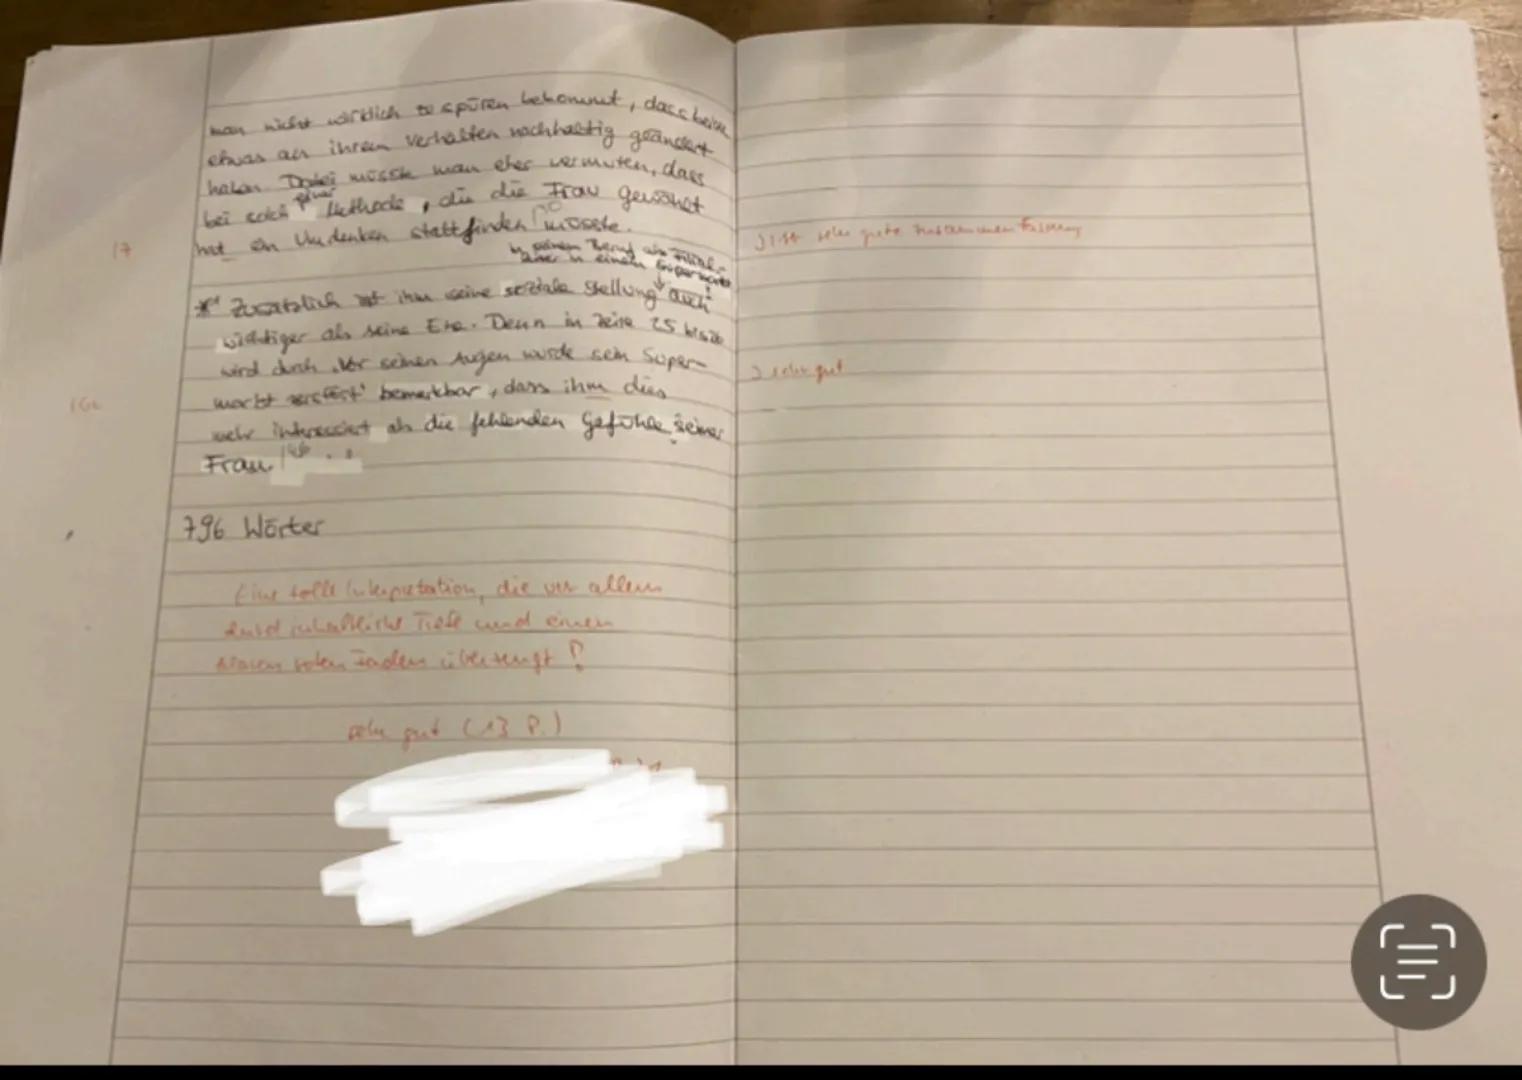 man nicht wirklich zu spüren bekommt, dass beide
etwas an ihrem Verhalten nachhaltig geändert
haben. Dabei müsste man eher vermuten, dass
bei solch einer Methode, die die Frau gewählt
hat ein Umdenken stattfinden müsste.
17
ist sehr gute Zusammenfassung
in seinem Beruf als Filial-
leiter in einem Supermarkt
* Zusätzlich ist ihm seine soziale Stellung auch
wichtiger als seine Ehe. Denn in Zeile 25 bis 26
wird durch "Vor seinen Augen wurde sein Super-
markt zerstört" bemerkbar, dass ihm dies
mehr interessiert als die fehlenden Gefühle seiner
Frau
sehr gut
796 Wörter
Eine tolle Interpretation, die vor allem
durch inhaltliche Tiefe und einen
klaren roten Faden überzeugt!
sehr gut (13 P.)